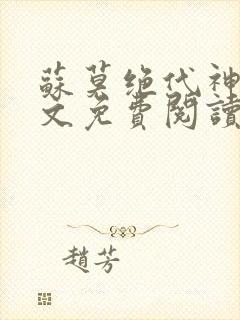 蘇莫绝代神
文免費閱讀
趙芳